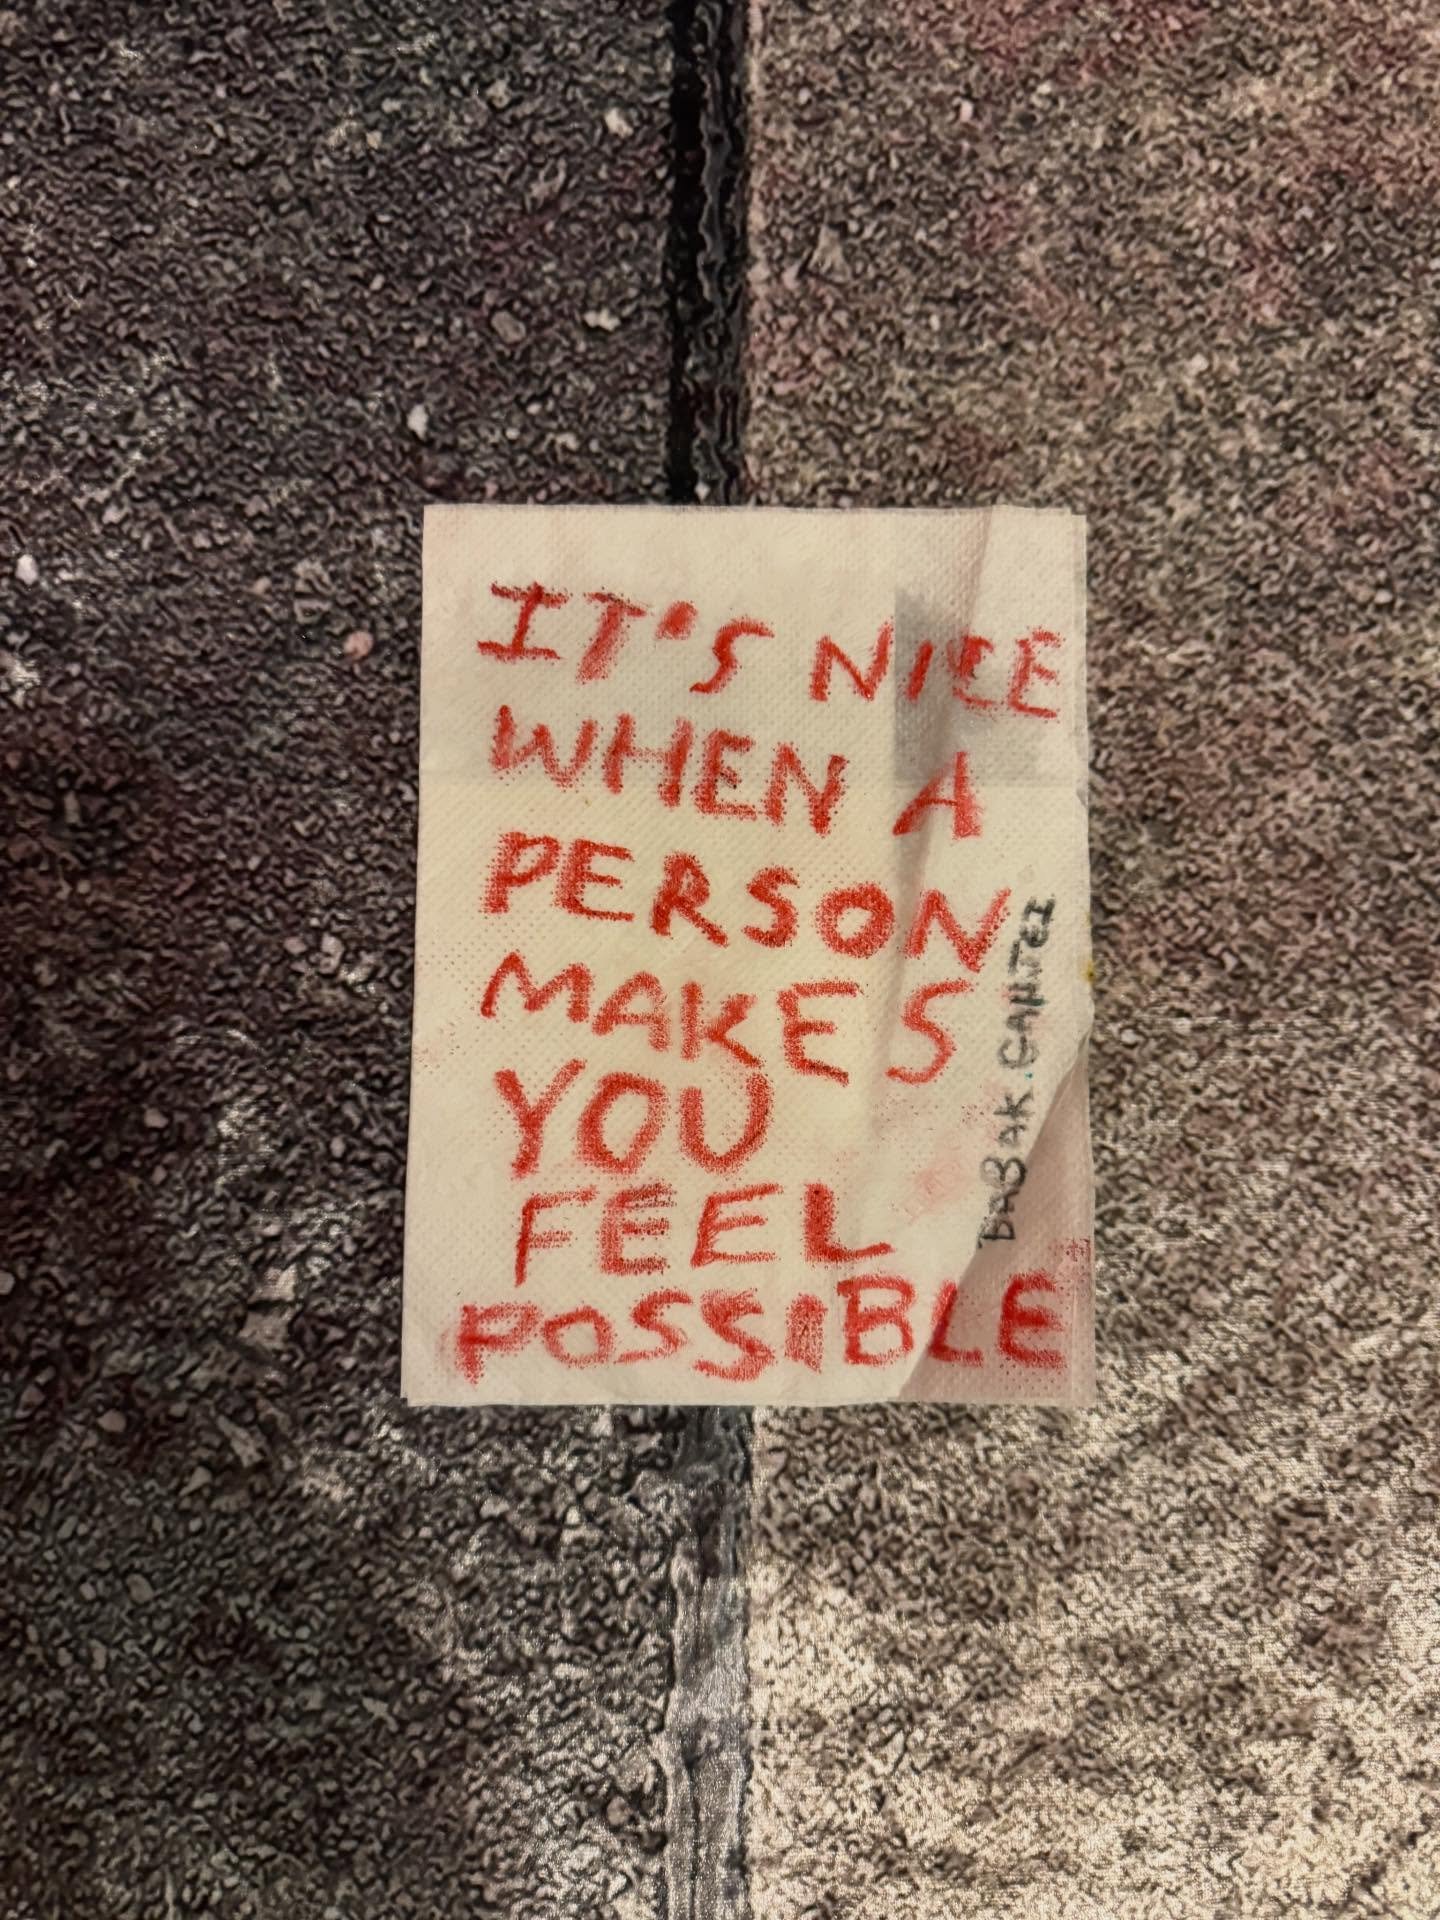 IT'S NICE
WHEN A
PERSON
MAKES
YOU
FEEL
POSSIBLE
BABAK.GANJEI